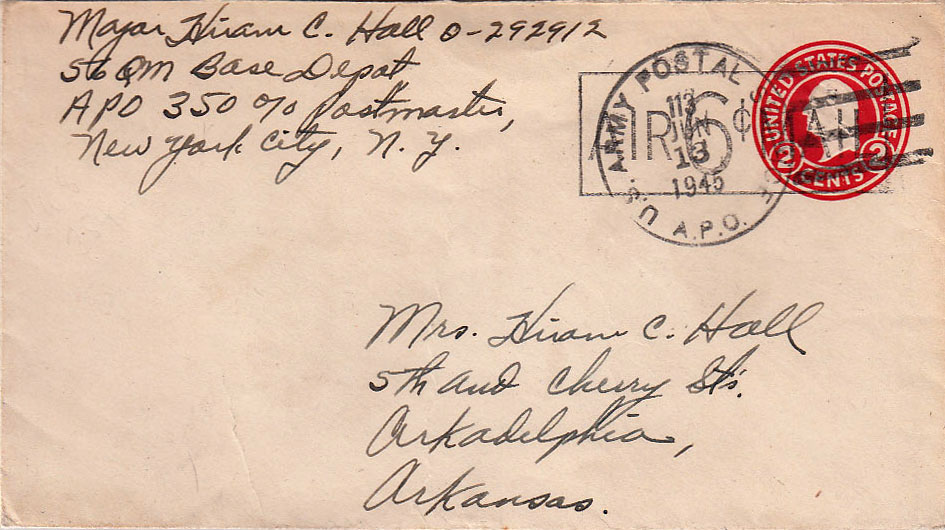 Major Hiram C. Hall O-292912
56 QM Base Depot,
APO 350 c/o Postmaster,
New York City, N. Y.
U.S. ARMY POSTAL
JUN
13
1945
A.P.O.
AIR 6¢
UNITED STATES POSTAGE
2 CENTS 2
Mrs. Hiram C. Hall
5th and Cherry Sts.
Arkadelphia,
Arkansas.